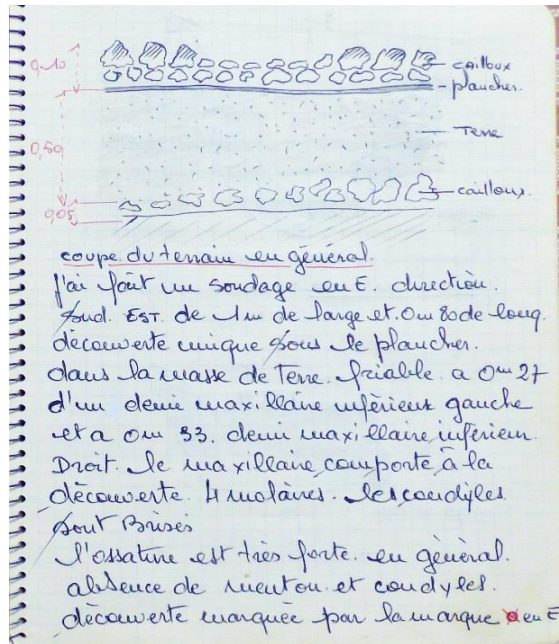 0,10
cailloux
plancher.
Terre
0,50
cailloux.
0,05
coupe du terrain en général.
J'ai fait un sondage en E. direction.
Sud. EST. de 1m de large et. 0m 80 de long.
découverte unique sous le plancher.
dans la masse de Terre. friable. a 0m 27
d'un demi maxillaire inférieur gauche
et a 0m 33. demi maxillaire inférieur
Droit. le maxillaire comporte à la
découverte. 4 molaires. les condyles
sont Brisés
l'ossature est très forte. en général.
absence de menton et condyles.
découverte marquée par la marque en E